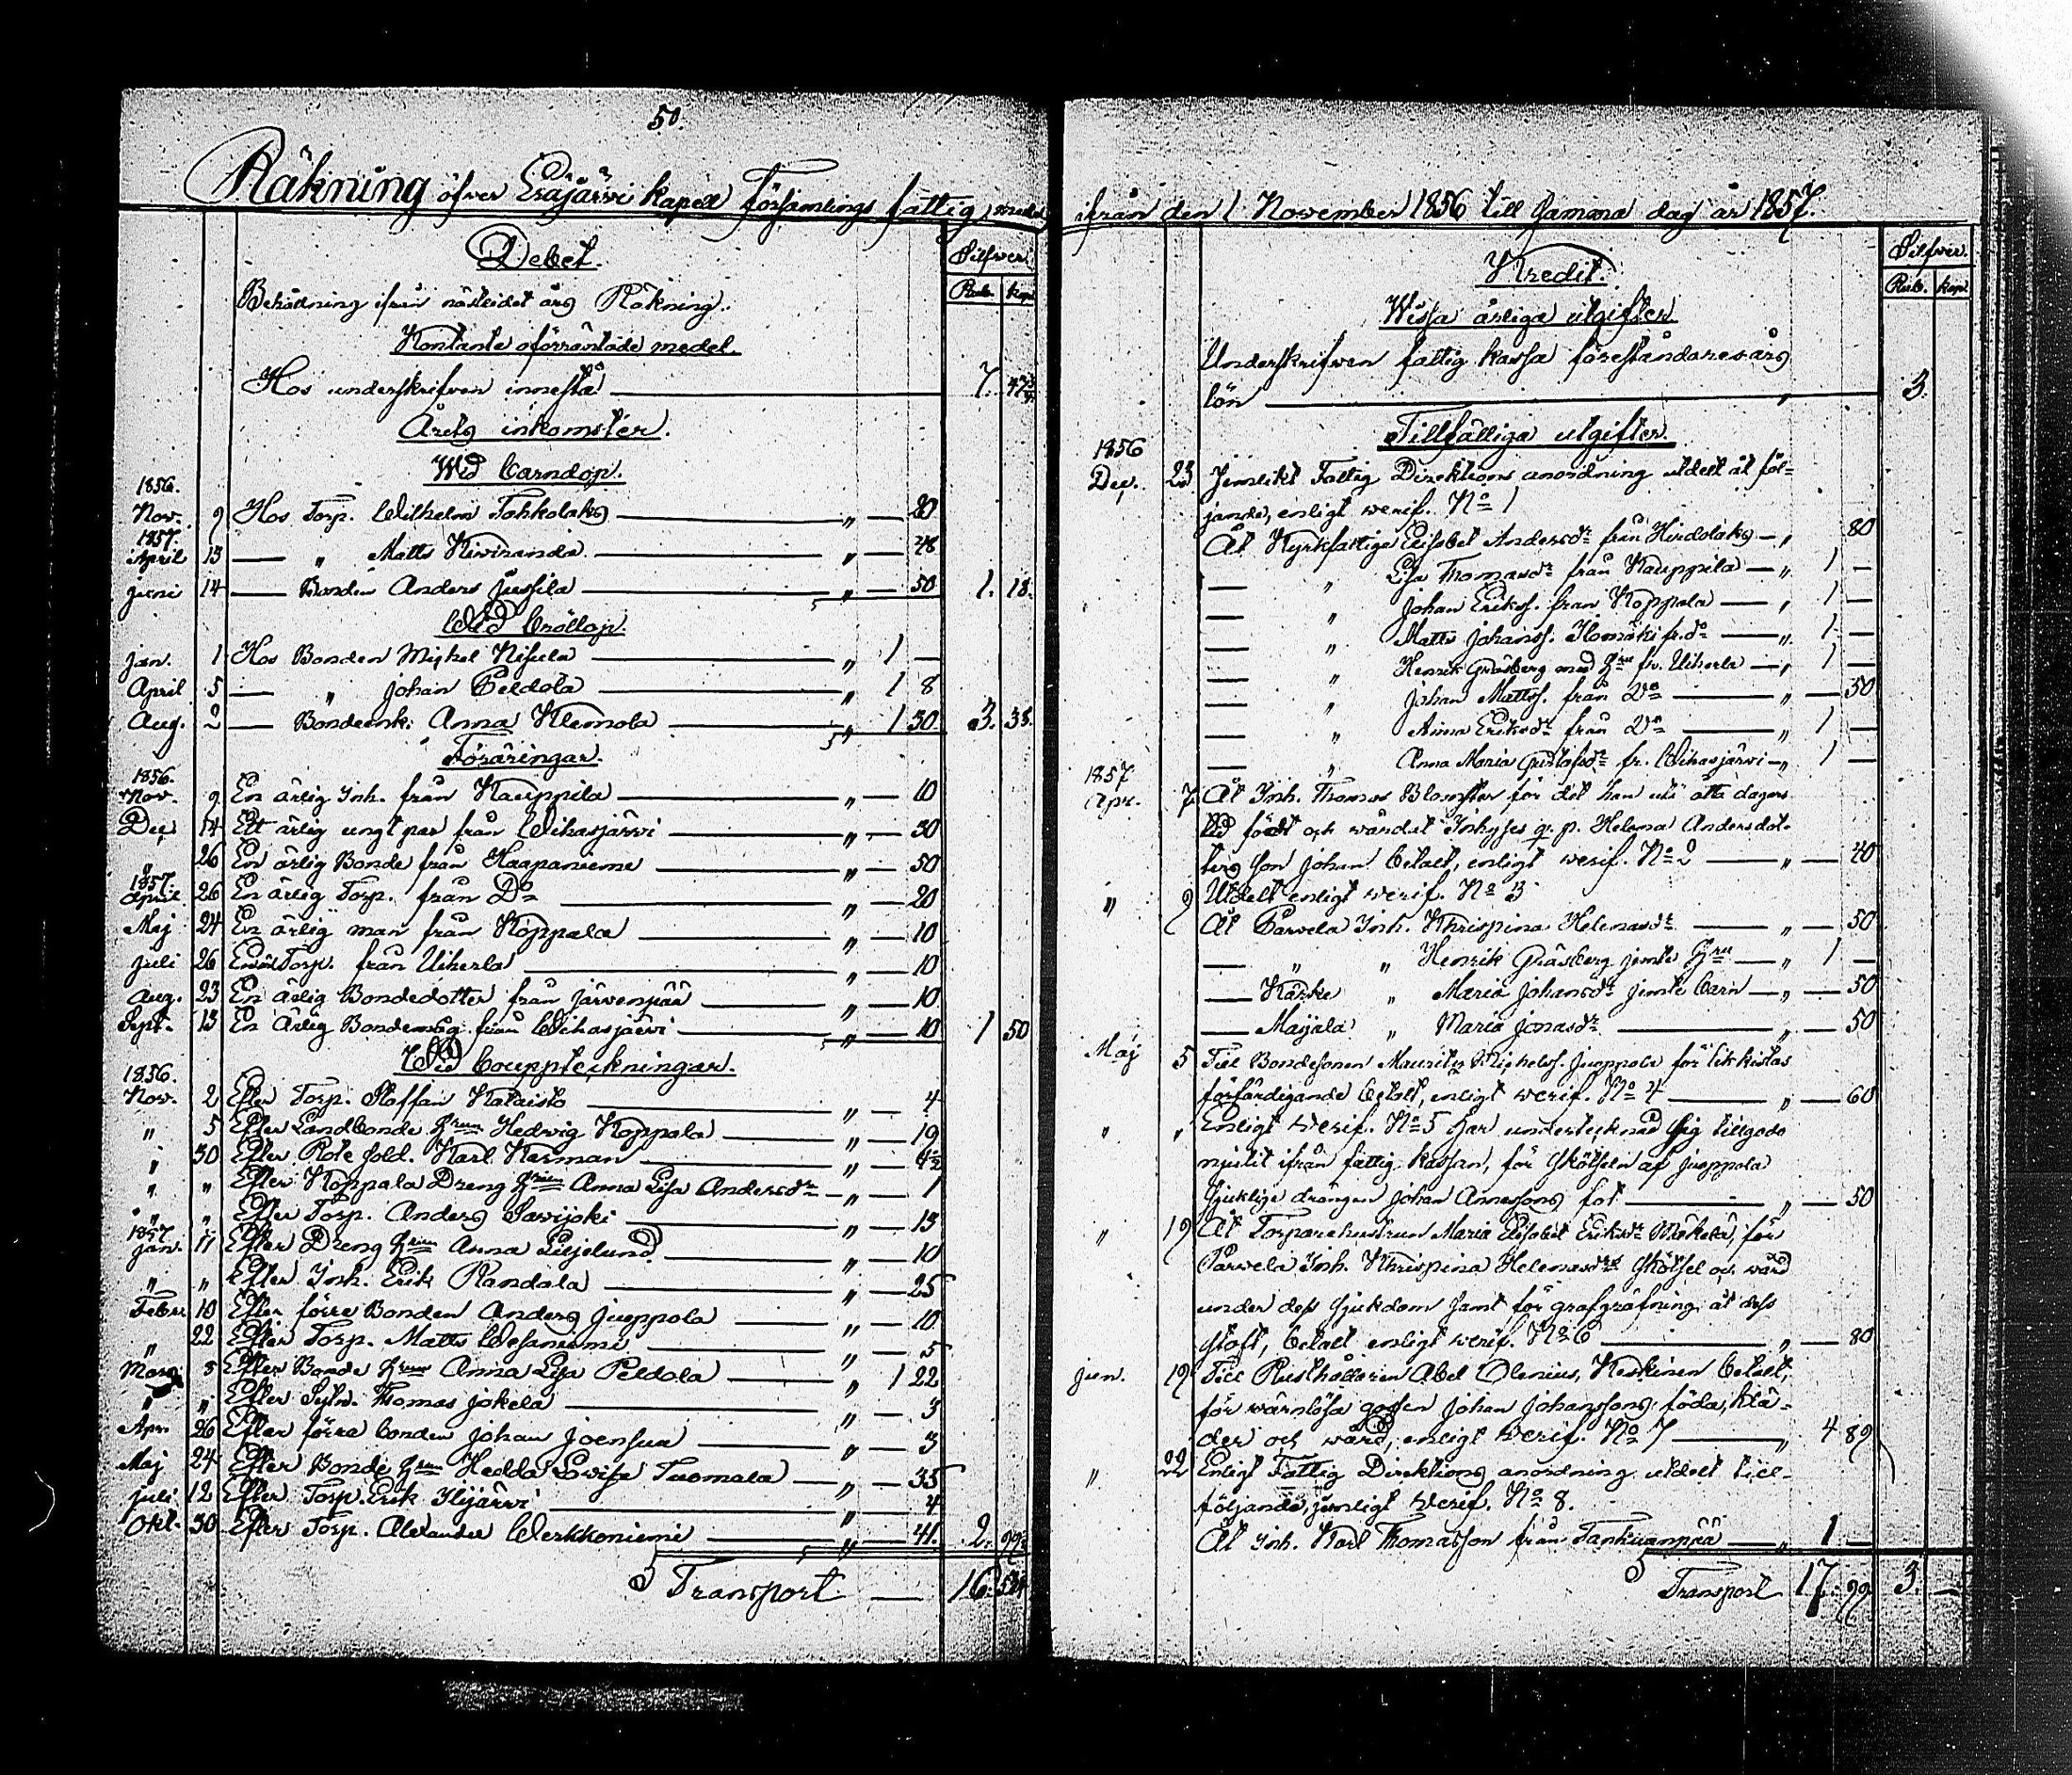 50.
Räkning öfver Eräjärvi kapell Församlings fattig medel
Debet.
Silfver.
Rub. kop.
Behållning ifrån nästledet års Räkning.
Kontante oförräntade medel.
Hos underskrifven innestå 7. 47
Årets inkomster.
Wid barndop.
1856.
Nov. 9 Hos Torp. Wilhelm Tohkolaks „ — 20
1857.
April 13 — „ Matts Kiviranda „ — 48
juni 14 — Bonden Anders Jussila „ — 50 1. 18.
Wid bröllop.
Jan. 1 Hos Bonden Mickel Nisula „ 1 —
April 5 — „ Johan Peldola „ 1 8
Aug. 2 — Bondeenk. Anna Klemola „ 1 30. 3. 38.
Föräringar.
1856.
Nov. 9 En ärlig Inh. från Kauppila „ — 10
Dec. 14 Ett ärlig ungt par från Wihasjärvi „ — 30
„ 26 En ärlig Bonde från Haapanieme „ — 50
1857.
April 26 En ärlig Torp. från Do „ — 20
Maj 24 En ärlig man från Koppala „ — 10
juli 26 En äl Torp. från Uiherla „ — 10
Aug. 23 En ärlig Bondedotter från Järvenpää „ — 10
Sept. 13 En ärlig Bondemåg från Wihasjärvi „ — 10 1 50
Wid bouppteckningar.
1856.
Nov. 2 Efter Torp. Staffan Kataisto „ — 4
„ 5 Efter Landbonde Hrun Hedvig Koppala „ — 19
„ 30 Efter Rote sold. Karl Karman „ — 4½
„ „ Efter Koppala Dreng Hrun Anna Lisa Andersdr „ — 1
„ „ Efter Torp. Anders Savijoki „ — 13
1857
Jan. 11 Efter Dreng Hrun Anna Liljelund „ — 10
„ „ Efter Inh. Erik Randala „ — 25
Febr. 10 Efter förre Bonden Anders Juoppola „ — 10
„ 22 Efter Torp. Matts Wesaniemi „ — 5
Mars 5 Efter Bonde Hrun Anna Lisa Peldola „ 1 22
„ „ Efter Sytn. Thomas Jokela „ — 3
Apr. 26 Efter förre bonden Johan Joensuu „ — 3
Maj 24 Efter Bonde Hrun Hedda Lovisa Tuomala „ — 35
juli 12 Efter Torp. Erik Ylijärvi „ — 4
Okt. 30 Efter Torp. Alexander Werkkoniemi „ — 41. 2. 99½
Transport — 16.
ifrån den 1 November 1856 till samma dag år 1857.
Kredit.
Silfver.
Rub. kop.
Wissa årliga utgifter
Underskrifven fattig kassa föreståndares års
lön „ 3.
Tillfälliga utgifter.
1856
Dec. 23 Jemlikt Fattig Direktions anordning utdelt åt föl-
jande, enligt verif. No 1
Åt Kyrkfattige Elisabet Andersdr från Hirdolaks — „ 80
— „ Lisa Thomasdr från Kauppila — „ 1 —
— „ Johan Erikss. från Koppala — „ 1 —
— „ Matts Johanss. Homäki fr. do — „ 1 —
— „ Henrik Gråsberg med Hru fr. Uiherla — „ 1 —
— „ Johan Mattss. från Do — „ — 50
— „ Anna Eriksdr från Do — „ 1 —
— „ Anna Maria Gustafsdr fr. Wihasjärvi — „ 1 —
1857
Apr. 7 Åt Inh. Thomas Blomster för det han uti åtta dagars
tid födt och vårdat Inhyses q. p. Helena Andersdot-
ters son Johan betalt, enligt verif. No 2 „ — 40
„ 9 Utdelt enligt verif. No 3
Åt Parvela Inh. Khrispina Helenasdr „ — 50
— „ „ Henrik Gråsberg jemte Hru — „ 1 —
— Kärke „ Maria Johansdr jemte barn — „ — 50
— Maijala „ Maria Jonasdr „ — 50
Maj 5 Till Bondesonen Mauritz Mickelss. Juoppola för likkistas
förfärdigande betalt, enligt verif. No 4 „ — 60
„ „ Enligt Verif. No 5 har undertecknad sig tillgodo
njutit ifrån fattig kassan, för skötseln af Juoppola
sjuklige drängen Johan Annassons fot „ — 50
„ 19 Åt Torparehustrun Maria Elisabet Eriksdr Mäkelä, för
Parvela Inh. Khrispina Helenasdrs skötsel och vård
under dess sjukdom samt för grafgräfning åt dess
stoft, betalt enligt verif. No 6 „ — 80
Jun. 19 Till Rusthållaren Abel Olenius, Keskinen betalt,
för värnlösa gossen Johan Johanssons föda, klä-
der och vård, enligt Verif. No 7 „ 4 89
„ 22 Enligt Fattig Direktions anordning utdelt till-
följande, jemligt Verif. No 8.
Åt Inh. Karl Thomasson från Tankuanpää — „ 1 —
Transport 17. 99 3. —